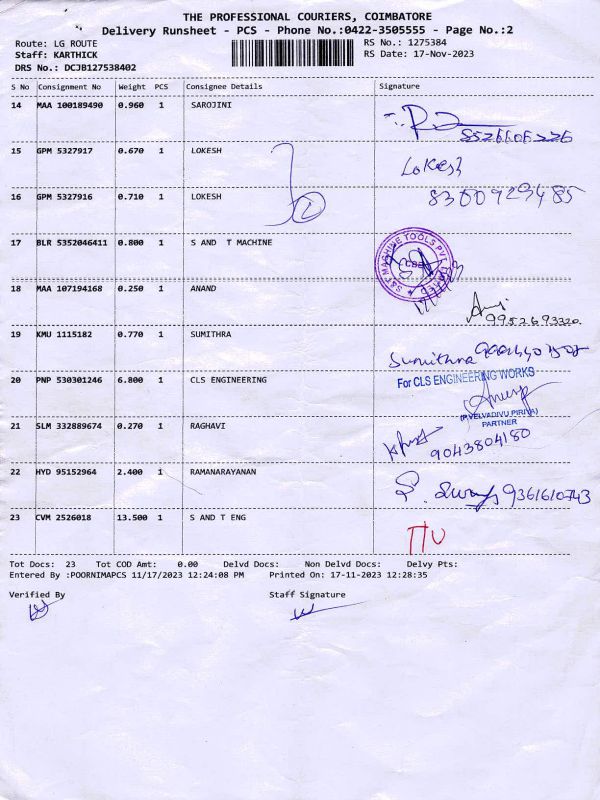 THE PROFESSIONAL COURIERS, COIMBATORE
Delivery Runsheet - PCS - Phone No.:0422-3505555 - Page No.:2
Route: LG ROUTE RS No.: 1275384
Staff: KARTHICK RS Date: 17-Nov-2023
DRS No.: DCJB127538402
S No Consignment No Weight PCS Consignee Details Signature
14 MAA 100189490 0.960 1 SAROJINI
15 GPM 5327917 0.670 1 LOKESH Lokesh
16 GPM 5327916 0.710 1 LOKESH
17 BLR 5352046411 0.800 1 S AND T MACHINE
S&T MACHINE TOOLS PVT LIMITED
18 MAA 107194168 0.250 1 ANAND
9952693320
19 KMU 1115182 0.770 1 SUMITHRA Sumithra
20 PNP 530301246 6.800 1 CLS ENGINEERING For CLS ENGINEERING WORKS
(P.VELVADIVU PIRIYA)
PARTNER
21 SLM 332889674 0.270 1 RAGHAVI 9043804180
22 HYD 95152964 2.400 1 RAMANARAYANAN 9361610743
23 CVM 2526018 13.500 1 S AND T ENG
Tot Docs: 23 Tot COD Amt: 0.00 Delvd Docs: Non Delvd Docs: Delvy Pts:
Entered By :POORNIMAPCS 11/17/2023 12:24:08 PM Printed On: 17-11-2023 12:28:35
Verified By Staff Signature